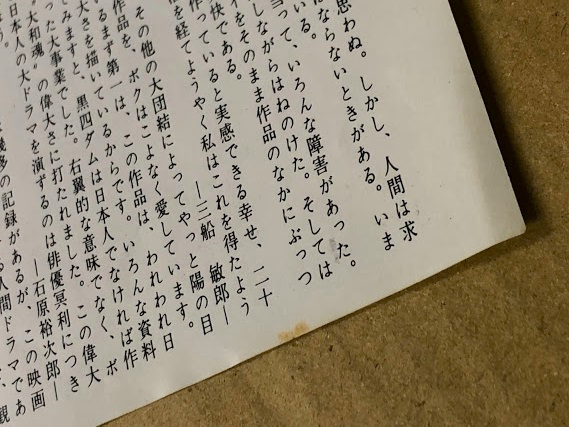 思わぬ。しかし、人間は求
ばならないときがある。いま
いる。
当って、いろんな障害があった。
しながらはねのけた。そしては
イをそのまま作品のなかにぶっつ
快である。
作っていると実感できる幸せ、二十
を経てようやく私はこれを得たよう
―三船 敏郎―
その他の大団結によってやっと陽の目
作品を、ボクはこよなく愛しています。
るまず第一は、この作品は、われわれ日
大きさを描いているからです。いろんな資料
てみますと、黒四ダムは日本人でなければ作
った大事業でした。右翼的な意味でなく、ボ
“大和魂”の偉大さに打たれました。この偉大
日本人の大ドラマを演ずるのは俳優冥利につき
―石原裕次郎―
幾多の記録があるが、この映画
る人間ドラマであ
観